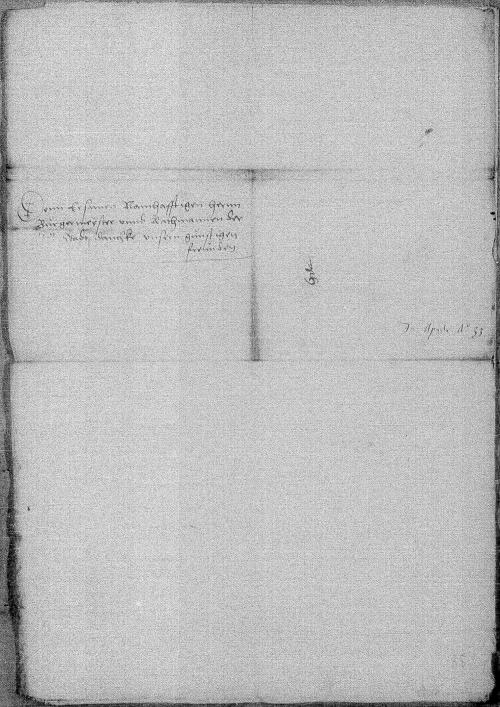 Denn Ersamen Namhafftigen herrn
Bürgermeister vnnd Rathmannen der
Stadt Dantzke vnsern günstigen
freunden
Aprilis Aº 53